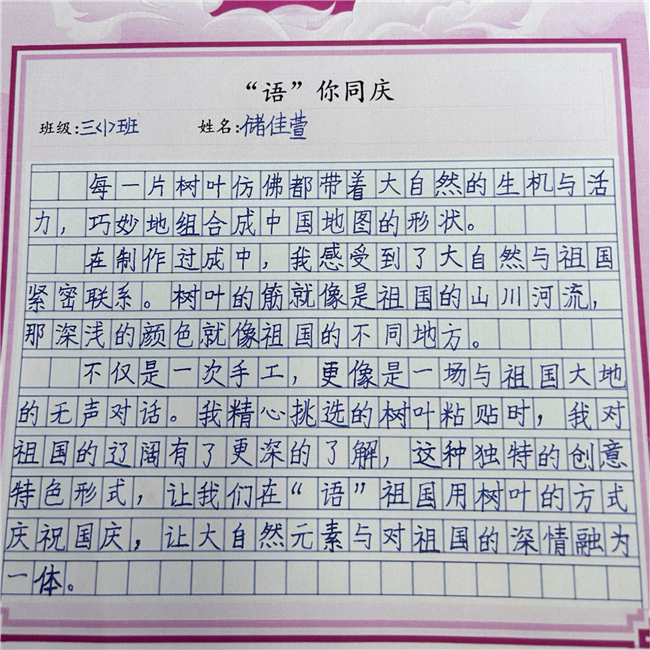 “语”你同庆
班级:三<小>班 姓名:储佳萱
每一片树叶仿佛都带着大自然的生机与活
力，巧妙地组合成中国地图的形状。
在制作过成中，我感受到了大自然与祖国
紧密联系。树叶的筋就像是祖国的山川河流，
那深浅的颜色就像祖国的不同地方。
不仅是一次手工，更像是一场与祖国大地
的无声对话。我精心挑选的树叶粘贴时，我对
祖国的辽阔有了更深的了解，这种独特的创意
特色形式，让我们在“语”祖国用树叶的方式
庆祝国庆，让大自然元素与对祖国的深情融为
一体。